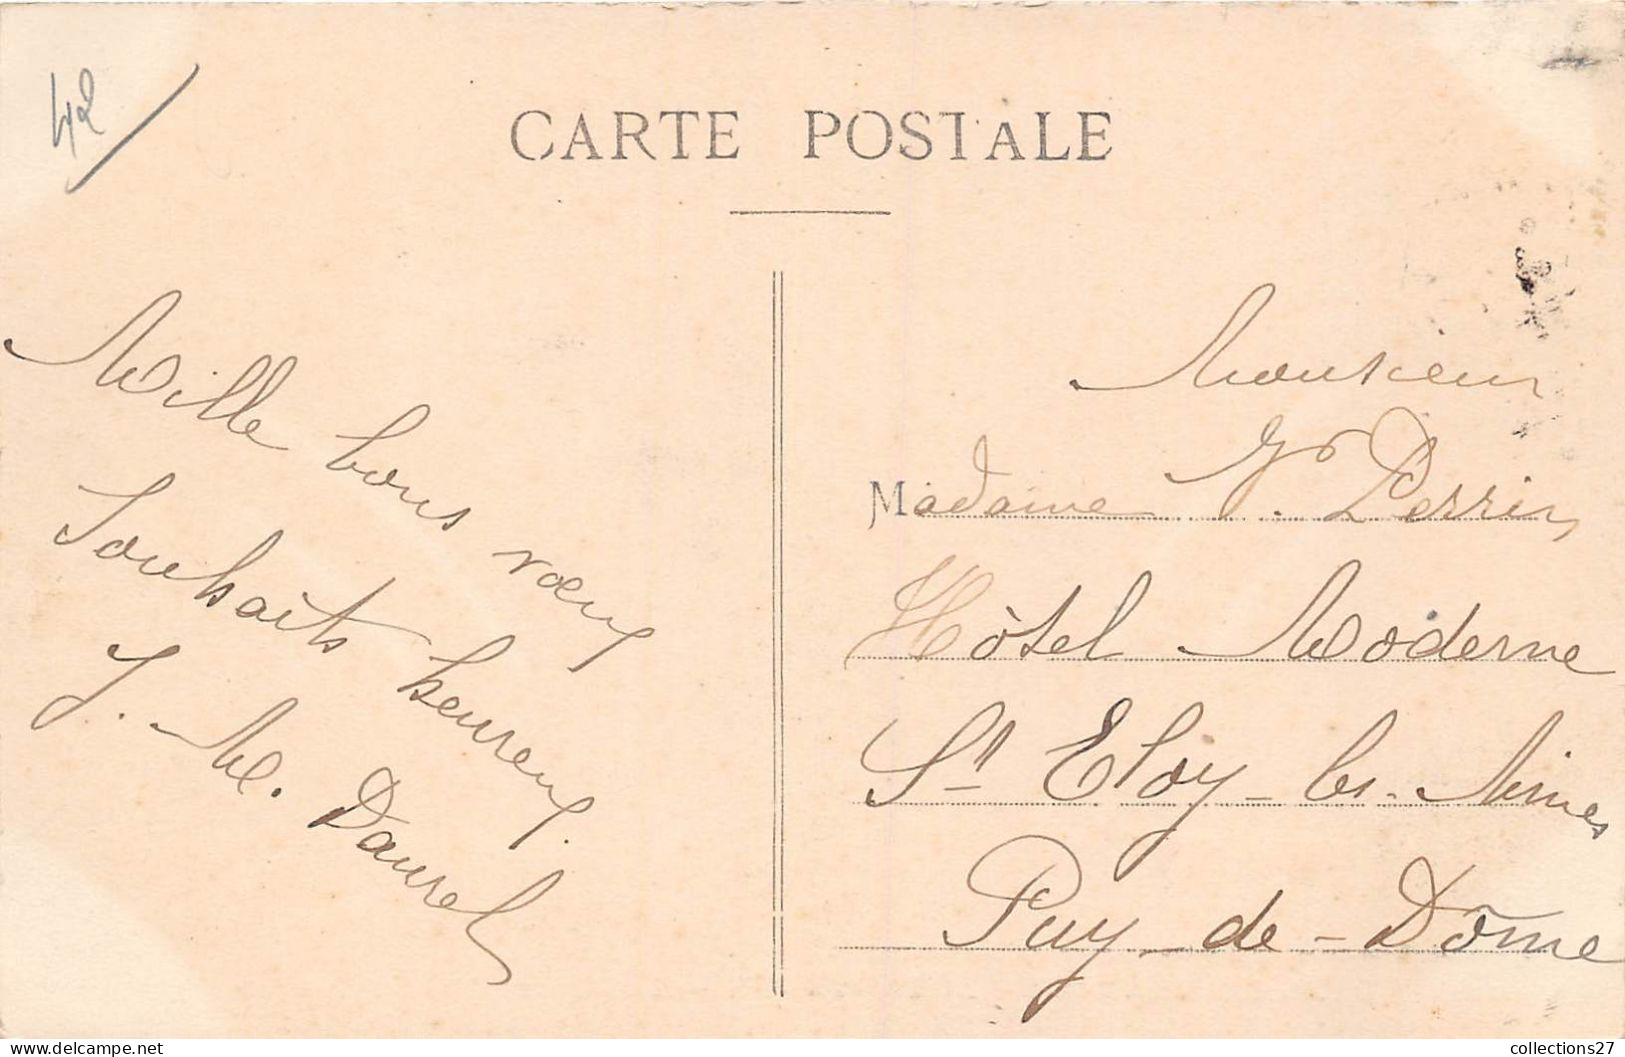 42
CARTE POSTALE
Mille bons vœux
Souhaits heureux.
J. M. Daurel
Monsieur
Madame V. Perrin
Hôtel Moderne
St Eloy-les-Mines
Puy-de-Dôme
collections27